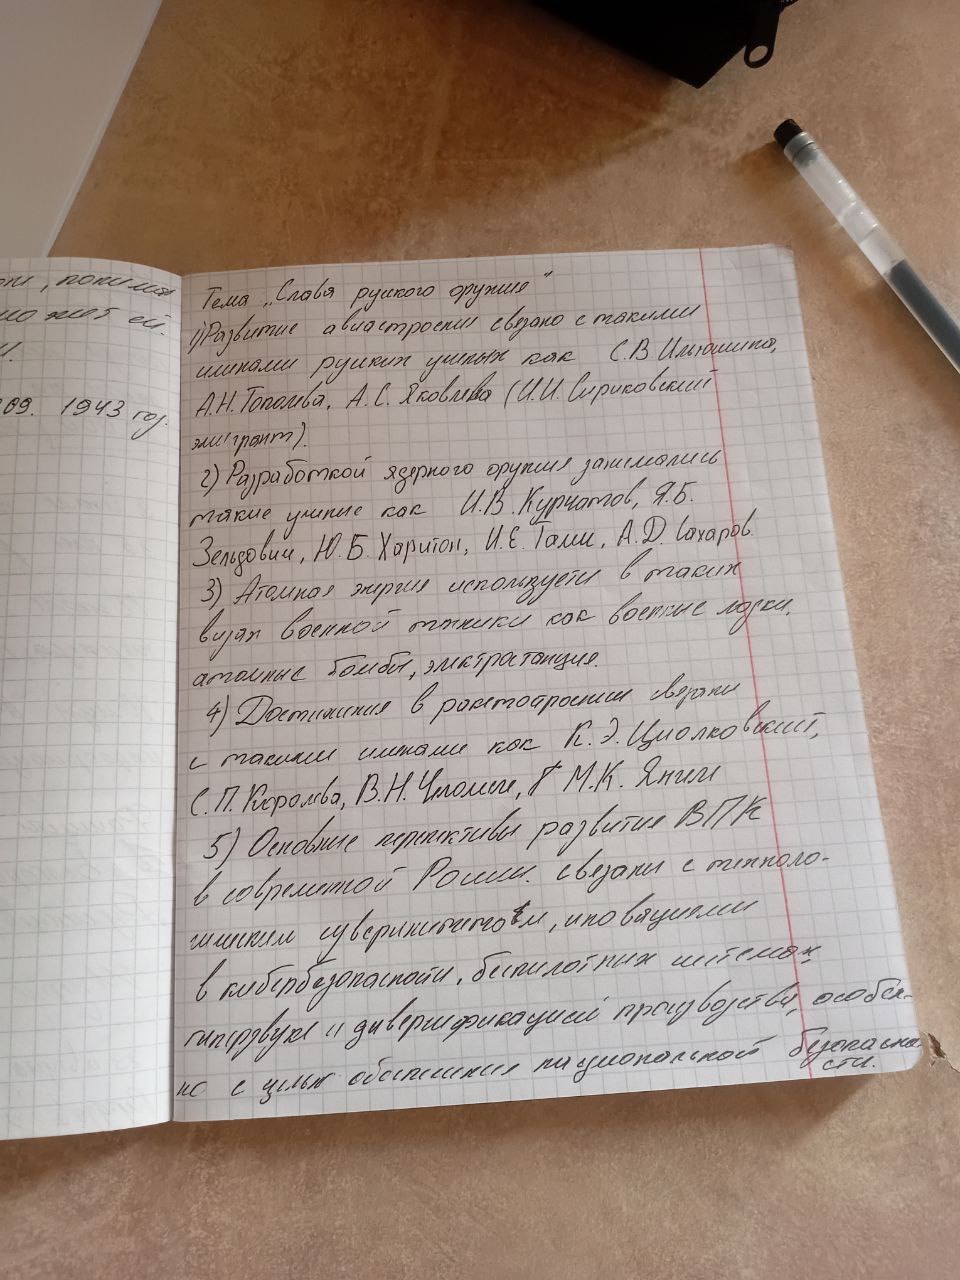 поним
может ей.
09. 1943 год.
Тема „Слава руского оружия"
1) Развитие авиастроения связано с такими
именами руских учёных как С.В Ильюшина,
А.Н. Тополева, А.С. Яковлева (И.И. Сикорский
эмигрант).
2) Разработкой ядерного оружия занимались
такие учёные как И.В. Курчатов, Я.Б.
Зельдович, Ю.Б. Харитон, И.Е. Тамм, А.Д. Сахаров.
3) Атомная энергия используется в таких
видах военной техники как военные лодки,
атомные бомбы, электростанция.
4) Достижения в ракетостроении связаны
с такими именами как К.Э. Циолковский,
С.П. Королёва, В.Н. Челомей, М.К. Янгель
5) Основные перпективы развития ВПК
в современной России. связаны с техноло-
гическим суверинитетом, иновациями
в кибербезопасности, беспилотных системах,
гиперзвуке и диверсификацией производства, особен-
но с целью обеспечения национальной безопасно
сти.